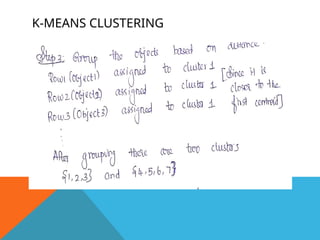 K-MEANS CLUSTERING
Step 2: Group the objects based on distance.
Row1 (Object1) assigned to cluster 1 [Since it is
Row2 (Object2) assigned to cluster 1 closer to the
Row3 (Object3) assigned to cluster 1 first centroid]
After grouping there are two clusters
{1,2,3} and {4,5,6,7}